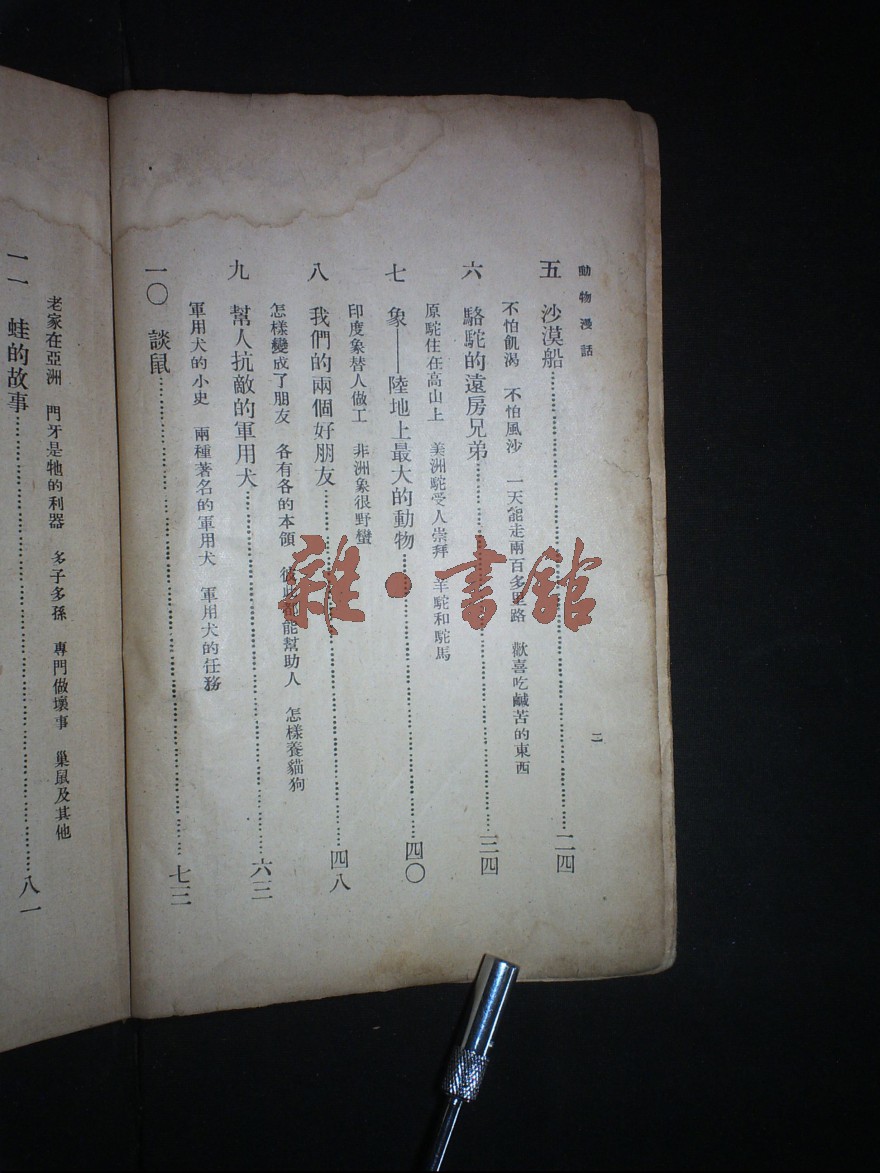 動物漫話
二
五　沙漠船……二四
不怕飢渴　不怕風沙　一天能走兩百多里路　歡喜吃鹹苦的東西
六　駱駝的遠房兄弟……三四
原駝住在高山上　美洲駝受人崇拜　羊駝和駝馬
七　象——陸地上最大的動物……四〇
印度象替人做工　非洲象很野蠻
八　我們的兩個好朋友……四八
怎樣變成了朋友　各有各的本領　彼此都能幫助人　怎樣養貓狗
九　幫人抗敵的軍用犬……六三
軍用犬的小史　兩種著名的軍用犬　軍用犬的任務
一〇　談鼠……七三
老家在亞洲　門牙是牠的利器　多子多孫　專門做壞事　巢鼠及其他
一一　蛙的故事……八一
雜·書館